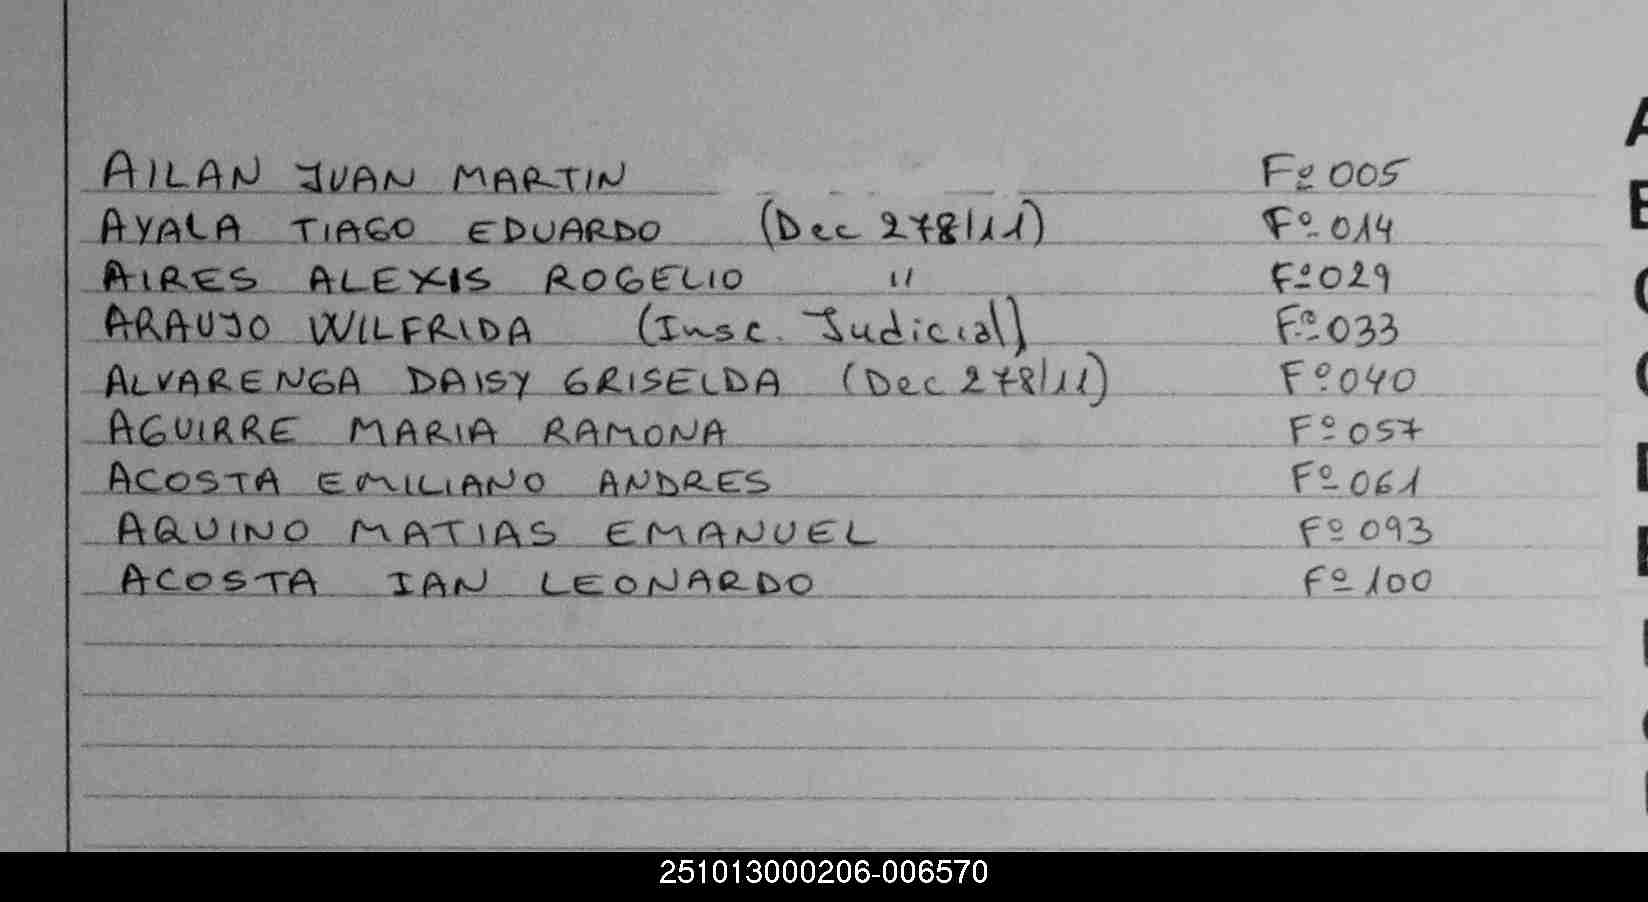 AILAN JUAN MARTIN Fº 005
AYALA TIAGO EDUARDO (Dec 278/11) Fº 014
AIRES ALEXIS ROGELIO " Fº 029
ARAUJO WILFRIDA (Insc. Judicial) Fº 033
ALVARENGA DAISY GRISELDA (Dec 278/11) Fº 040
AGUIRRE MARIA RAMONA Fº 057
ACOSTA EMILIANO ANDRES Fº 061
AQUINO MATIAS EMANUEL Fº 093
ACOSTA IAN LEONARDO Fº 100
251013000206-006570